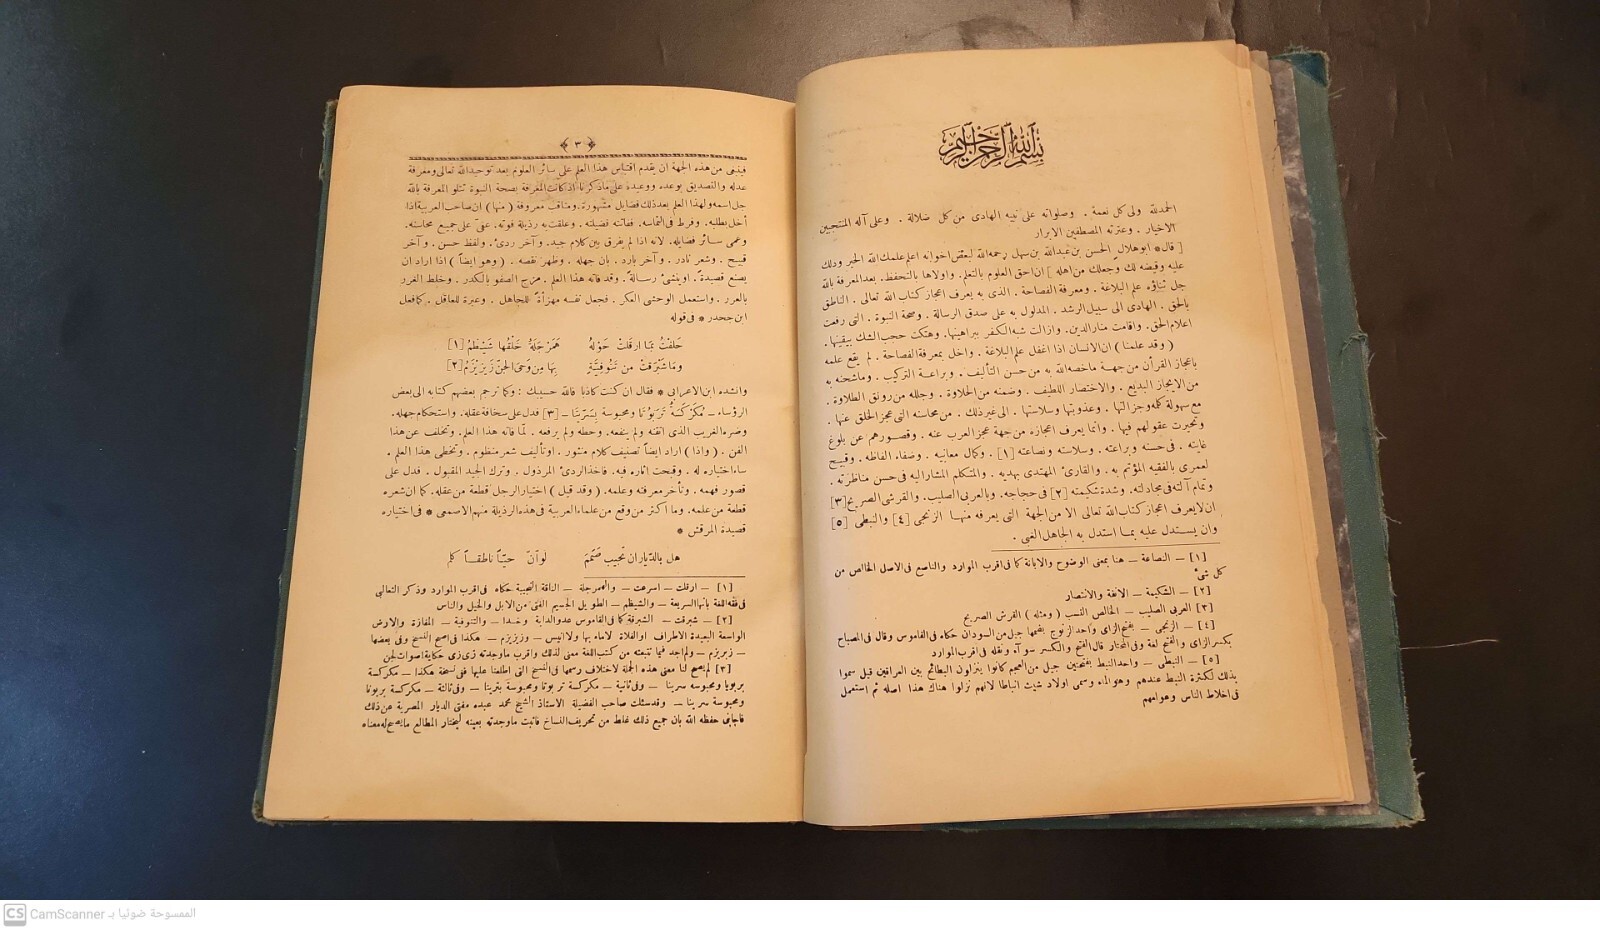 بسم الله الرحمن الرحيم
الحمد لله ولى كل نعمة . وصلواته على نبيه الهادى من كل ضلالة . وعلى آله المنتجبين
الاخيار . وعترته المصطفين الابرار
[ قال* ابوهلال الحسن بن عبدالله بن سهل رحمه الله لبعض اخوانه اعلم علمك الله الخير ودلك
عليه وقيضه لك وجعلك من اهله ] ان احق العلوم بالتعلم . واولاها بالتحفظ . بعد المعرفة بالله
جل ثناؤه علم البلاغة . ومعرفة الفصاحة . الذى به يعرف اعجاز كتاب الله تعالى . الناطق
بالحق . الهادى الى سبيل الرشد . المدلول به على صدق الرسالة . وصحة النبوة . التى رفعت
اعلام الحق . واقامت منار الدين . وازالت شبه الكفر ببراهينها . وهتكت حجب الشك بيقينها .
( وقد علمنا ) ان الانسان اذا اغفل علم البلاغة . واخل بمعرفة الفصاحة . لم يقع علمه
باعجاز القرأن من جهة ماخصه الله به من حسن التأليف . وبراعة التركيب . وماشحنه به
من الايجاز البديع . والاختصار اللطيف . وضمنه من الحلاوة . وجلله من رونق الطلاوة .
مع سهولة كلمه وجزالتها . وعذوبتها وسلاستها . الى غير ذلك . من محاسنه التى عجز الخلق عنها .
وتحيرت عقولهم فيها . وانما يعرف اعجازه من جهة عجز العرب عنه . وقصورهم عن بلوغ
غايته . فى حسنه وبراعته . وسلاسته ونصاعته [١] . وكمال معانيه . وصفاء الفاظه . وقبيح
لعمرى بالفقيه المؤتم به . والقارئ المهتدى بهديه . والمتكلم المشار اليه فى حسن مناظرته .
وتمام آلته فى مجادلته . وشدة شكيمته [٢] فى حجاجه . وبالعربى الصليب . والقرشى الصريح [٣]
ان لا يعرف اعجاز كتاب الله تعالى الا من الجهة التى يعرفه منها الزنجى [٤] والنبطى [٥]
وان يستدل عليه بما استدل به الجاهل الغبى .
[١] — النصاعة — هنا بمعنى الوضوح والابانة كما فى اقرب الموارد والناصع فى الاصل الخالص من
كل شئ
[٢] — الشكيمة — الانفة والانتصار
[٣] العربى الصليب — الخالص النسب ( ومثله ) القرشى الصريح
[٤] — الزنجى — بفتح الزاى واحد الزنوج بضمها جيل من السودان حكاه فى القاموس وقال فى المصباح
بكسر الزاى والفتح لغة وفى المختار قال الفتح والكسر سوآء ونقله فى اقرب الموارد
[٥] — النبطى — واحد النبط بفتحتين جيل من العجم كانوا ينزلون البطائح بين العراقين قيل سموا
بذلك لكثرة النبط عندهم وهو الماء وسمى اولاد شيث انباطا لانهم نزلوا هناك هذا اصله ثم استعمل
فى اخلاط الناس وعوامهم
٣
فينبغى من هذه الجهة ان يقدم اقتباس هذا العلم على سائر العلوم بعد توحيد الله تعالى ومعرفة
عدله والتصديق بوعده ووعيده على ماذكرنا اذ كانت المعرفة بصحة النبوة تتلو المعرفة بالله
جل اسمه ولهذا العلم بعد ذلك فضايل مشهورة . ومناقب معروفة ( منها ) ان صاحب العربية اذا
أخل بطلبه . وفرط فى التماسه . ففاتته فضيلته . وعلقت به رذيلة فوته . عفى على جميع محاسنه .
وعمى سائر فضايله . لانه اذا لم يفرق بين كلام جيد . وآخر ردئ . ولفظ حسن . وآخر
قبيح . وشعر نادر . وآخر بارد . بان جهله . وظهر نقصه . ( وهو ايضاً ) اذا اراد ان
يصنع قصيدة . اوينشئ رسالة . وقد فاته هذا العلم . مزج الصفو بالكدر . وخلط الغرر
بالعرر . واستعمل الوحشى العكر . فجعل نفسه مهزأة للجاهل . وعبرة للعاقل . كما فعل
ابن جحدر * فى قوله
حَلَفْتُ بمَا ارقَلَتْ حَولهُ هَمَرجَلَةٌ خَلْقُها شَيْظَمُ [١]
ومَا شَبْرَقَتْ من تَنُوفيَّةٍ بهَا مِن وَحَى الجنِّ زَيزِيَزمُ [٢]
وانشده ابن الاعرابى * فقال ان كنت كاذبا فالله حسيبك : وكما ترجم بعضهم كتابه الى بعض
الرؤساء — مُكركسَةٌ تَربُوتا ومحبوسة بسرّيتا — [٣] فدل على سخافة عقله . واستحكام جهله .
وضره الغريب الذى اتقنه ولم ينفعه . وحطه ولم يرفعه . لما فاته هذا العلم . وتخلف عن هذا
الفن . ( واذا ) اراد ايضاً تصنيف كلام منثور . اوتأليف شعر منظوم . وتخطى هذا العلم .
ساء اختياره له . وقبحت آثاره فيه . فاخذ الردئ المرذول . وترك الجيد المقبول . فدل على
قصور فهمه . وتأخر معرفته وعلمه . ( وقد قيل ) اختيار الرجل قطعة من عقله . كما ان شعره
قطعة من علمه . وما أكثر من وقع من علماء العربية فى هذه الرذيلة منهم الاصمعى * فى اختياره
قصيدة المرقش *
هل بالدّيار ان تجيب صَمَم لو أنّ حيّاً ناطقاً كلم
[١] — ارقلت — اسرعت — والهمرجلة — الناقة النجيبة حكاه فى اقرب الموارد وذكر الثعالبى
فى فقه اللغة بانها السريعة — والشيظم — الطويل الجسيم الفتى من الابل والخيل والناس
[٢] — شبرقت — الشبرقة كما فى القاموس عدو الدابة وخدا — والتنوفية — المفازة والارض
الواسعة البعيدة الاطراف اوالفلاة لاماء بها ولا انيس — وزيزيزم — هكذا فى اصح النسخ وفى بعضها
— زيزيزم — ولم اجد فيما تتبعته من كتب اللغة معنى لذلك واقرب ماوجدته زى زى حكاية اصوات لجن
[٣] لم يصح لنا معنى هذه الجملة لاختلاف رسمها فى النسخ التى اطلعنا عليها ففى نسخة هكذا — مكركسة
بربويا ومحبوسه سربنا — وفى ثانية — مكركسة تربوتا ومحبوسة بتربتا — وفى ثالثة — مكركسة بربوتا
ومحبوسة سربنا — وقد سئلت صاحب الفضيلة الاستاذ الشيخ محمد عبده مفتى الديار المصرية عن ذلك
فاجابنى حفظه الله بان جميع ذلك غلط من تحريف النساخ فاثبت ماوجدته بعينه ليختار المطالع مايصح له معناه
CS CamScanner الممسوحة ضوئيا بـ